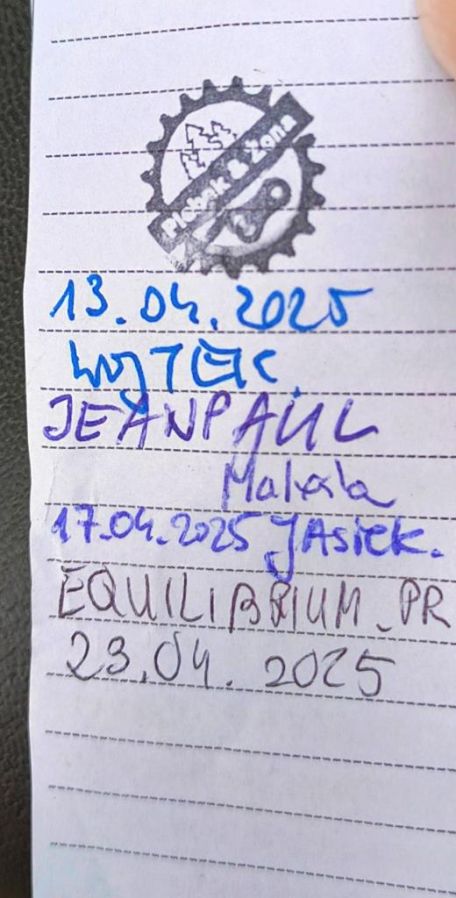 & Żona
13.04.2025
WOJTEK
JEANPAUL
17.04.2025 JAsiek.
EQUILIBRIUM_PR
23.04.2025